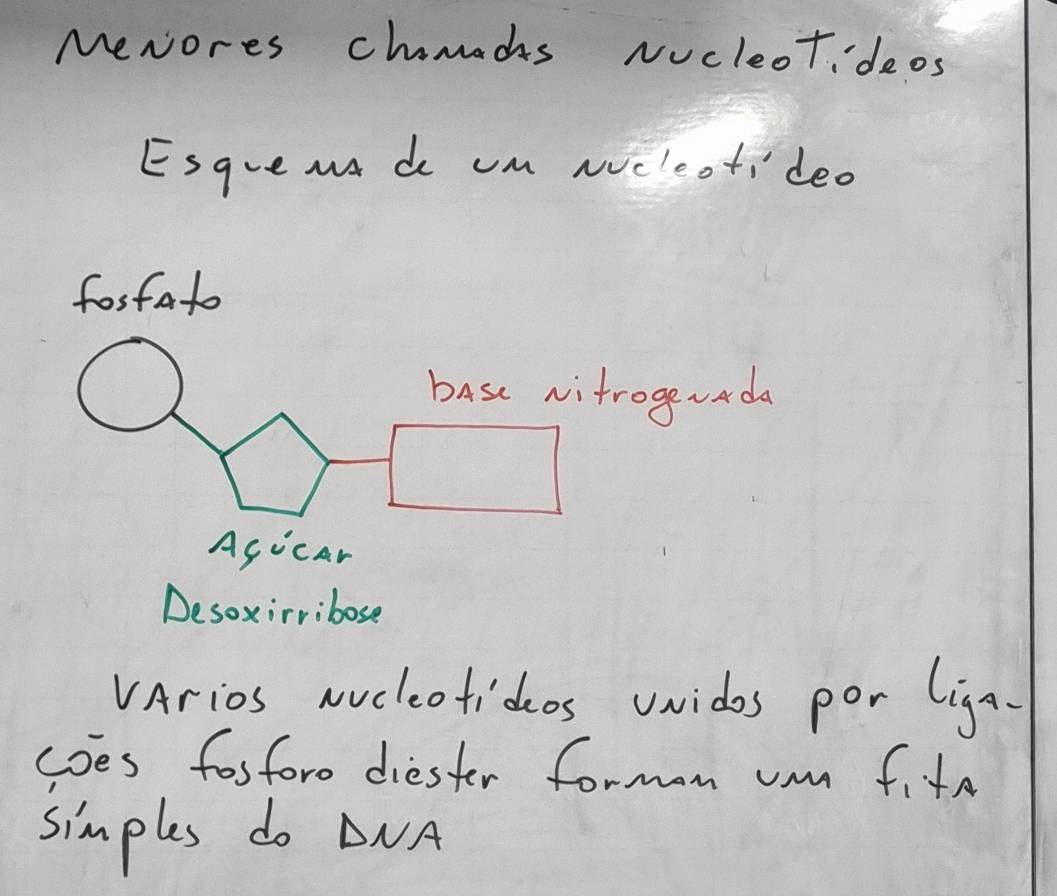 Menores chamadas Nucleotídeos
Esquema de um nucleotídeo
fosfato
base nitrogenada
Açúcar
Desoxirribose
Varios nucleotídeos unidos por liga-
ções fosforo diéster formam uma fita
símples do DNA